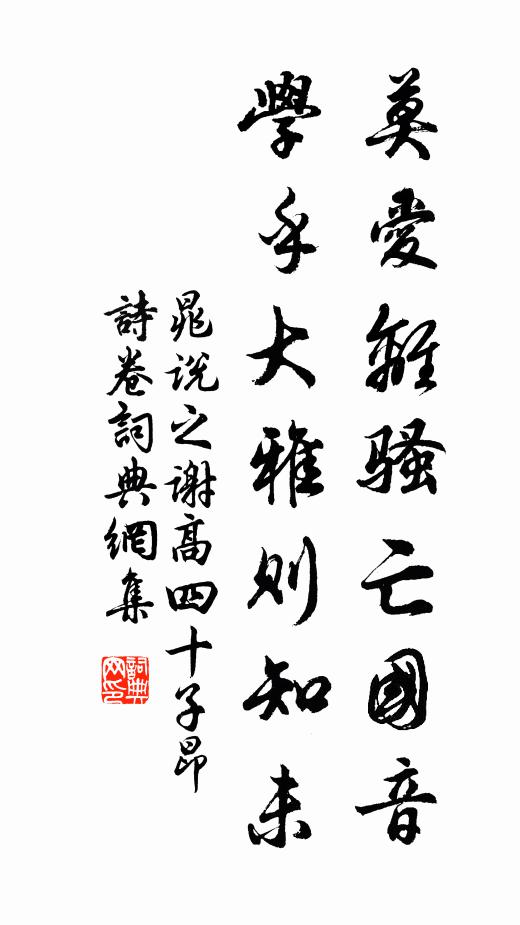 莫愛離騷亡國音
學乎大雅則知未
晁說之謝高四十子昂
詩卷詞典網集
詞典
网印